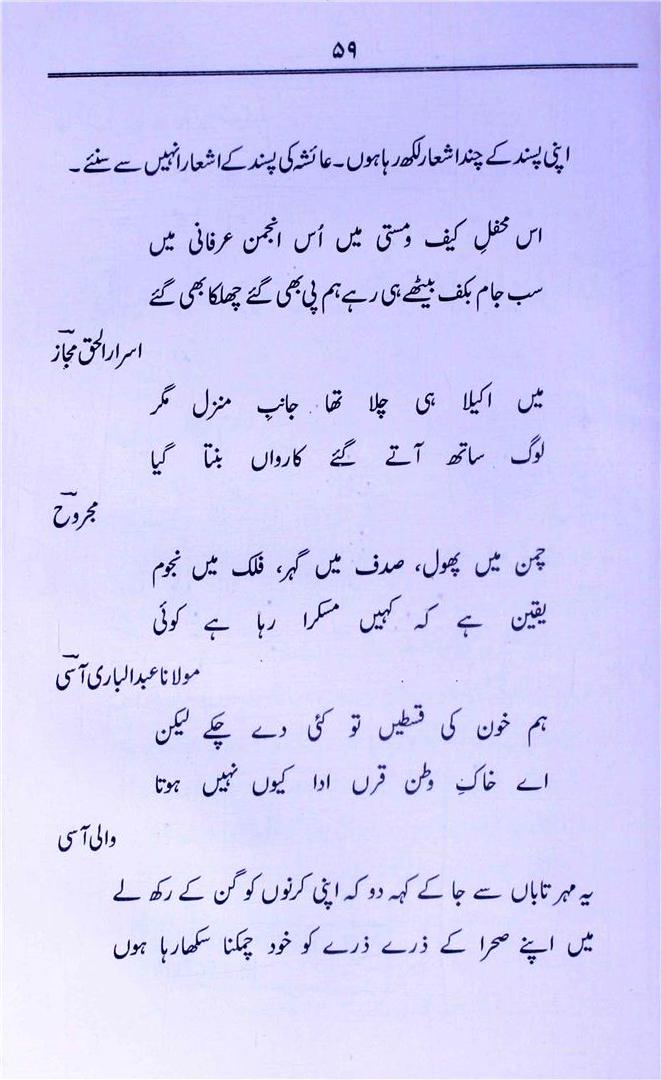 ۵۹
اپنی پسند کے چند اشعار لکھ رہا ہوں۔ عائشہ کی پسند کے اشعار انہیں سے سنئے۔
اس محفلِ کیف ومستی میں اُس انجمن عرفانی میں
سب جام بکف بیٹھے ہی رہے ہم پی بھی گئے چھلکا بھی گئے
اسرار الحق مجاز
میں اکیلا ہی چلا تھا جانبِ منزل مگر
لوگ ساتھ آتے گئے کارواں بنتا گیا
مجروح
چمن میں پھول، صدف میں گہر، فلک میں نجوم
یقین ہے کہ کہیں مسکرا رہا ہے کوئی
مولانا عبدالباری آسی
ہم خون کی قسطیں تو کئی دے چکے لیکن
اے خاکِ وطن قرں ادا کیوں نہیں ہوتا
والی آسی
یہ مہر تاباں سے جا کے کہہ دو کہ اپنی کرنوں کو گن کے رکھ لے
میں اپنے صحرا کے ذرے ذرے کو خود چمکنا سکھا رہا ہوں